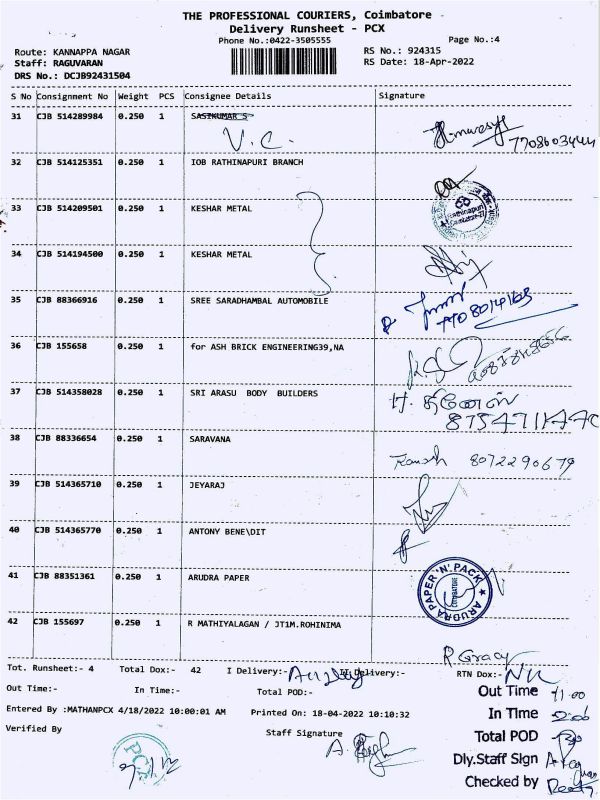 THE PROFESSIONAL COURIERS, Coimbatore
Delivery Runsheet - PCX
Phone No.:0422-3505555
Page No.:4
Route: KANNAPPA NAGAR
RS No.: 924315
Staff: RAGUVARAN
RS Date: 18-Apr-2022
DRS No.: DCJB92431504
S No Consignment No Weight PCS Consignee Details Signature
31 CJB 514289984 0.250 1 SASIKUMAR S
V.C.
32 CJB 514125351 0.250 1 IOB RATHINAPURI BRANCH
33 CJB 514209501 0.250 1 KESHAR METAL
34 CJB 514194500 0.250 1 KESHAR METAL
35 CJB 88366916 0.250 1 SREE SARADHAMBAL AUTOMOBILE
36 CJB 155658 0.250 1 for ASH BRICK ENGINEERING39,NA
37 CJB 514358028 0.250 1 SRI ARASU BODY BUILDERS
38 CJB 88336654 0.250 1 SARAVANA
8072290679
39 CJB 514365710 0.250 1 JEYARAJ
40 CJB 514365770 0.250 1 ANTONY BENE\DIT
41 CJB 88351361 0.250 1 ARUDRA PAPER
ARUDRA PAPER 'N' PACK
COIMBATORE
42 CJB 155697 0.250 1 R MATHIYALAGAN / JT1M.ROHINIMA
R Gracy
Tot. Runsheet:- 4 Total Dox:- 42 I Delivery:- II Delivery:- RTN Dox:-
Out Time:- In Time:- Total POD:-
Out Time 11.00
Entered By :MATHANPCX 4/18/2022 10:00:01 AM Printed On: 18-04-2022 10:10:32
In Time
Verified By Staff Signature
Total POD
Dly.Staff Sign
Checked by